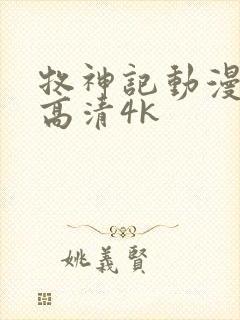 牧神記動漫
高清4K
姚義賢